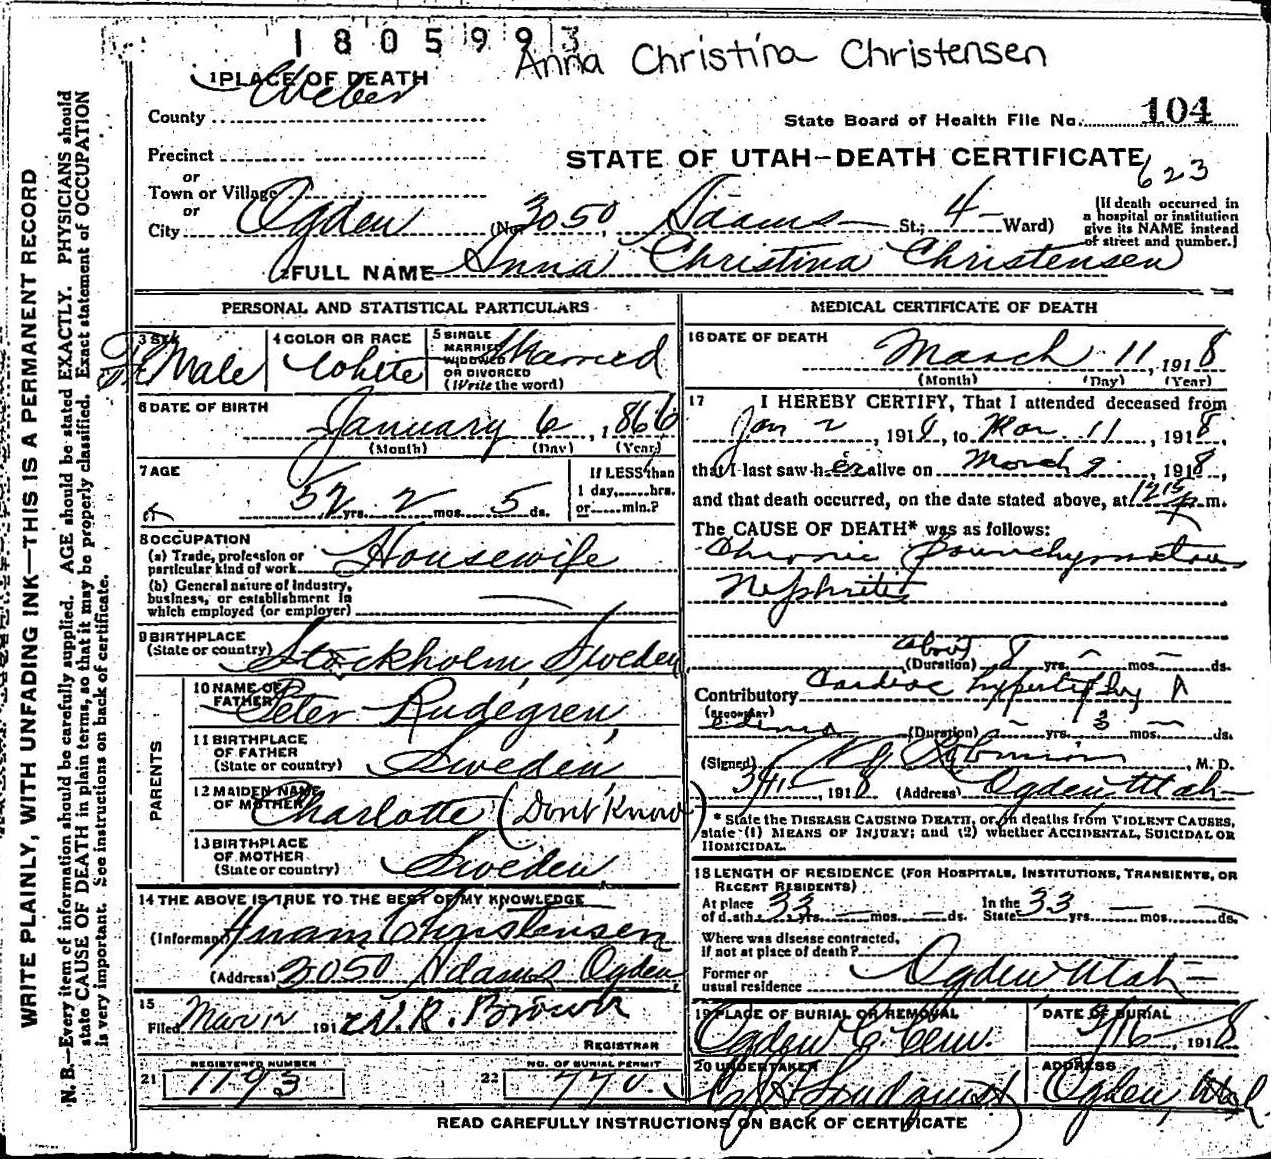 1805993
Anna Christina Christensen
1 PLACE OF DEATH
County Weber
State Board of Health File No. 104
Precinct
STATE OF UTAH—DEATH CERTIFICATE
623
or
Town or Village
or
City Ogden (No. 3050, Adams St.; 4 Ward)
(If death occurred in a hospital or institution give its NAME instead of street and number.)
2 FULL NAME Anna Christina Christensen
WRITE PLAINLY, WITH UNFADING INK—THIS IS A PERMANENT RECORD
N. B.—Every item of information should be carefully supplied. AGE should be stated EXACTLY. PHYSICIANS should
state CAUSE OF DEATH in plain terms, so that it may be properly classified. Exact statement of OCCUPATION
is very important. See instructions on back of certificate.
PERSONAL AND STATISTICAL PARTICULARS
3 SEX FeMale
4 COLOR OR RACE White
5 SINGLE MARRIED WIDOWED OR DIVORCED (Write the word) Married
6 DATE OF BIRTH
January 6, 1866
(Month) (Day) (Year)
7 AGE
52 yrs. 2 mos. 5 ds.
If LESS than 1 day, hrs. or min.?
8 OCCUPATION
(a) Trade, profession or particular kind of work Housewife
(b) General nature of Industry, business, or establishment in which employed (or employer) —
9 BIRTHPLACE
(State or country) Stockholm, Sweden
PARENTS
10 NAME OF FATHER Peter Rudegren
11 BIRTHPLACE OF FATHER (State or country) Sweden
12 MAIDEN NAME OF MOTHER Charlotte (Dont Know)
13 BIRTHPLACE OF MOTHER (State or country) Sweden
14 THE ABOVE IS TRUE TO THE BEST OF MY KNOWLEDGE
(Informant) Christensen
(Address) 3050 Adams Ogden
15
Filed Mar 12 191 W. R. Brown
REGISTRAR
21 REGISTERED NUMBER 1193
22 NO. OF BURIAL PERMIT 770
MEDICAL CERTIFICATE OF DEATH
16 DATE OF DEATH
March 11, 1918
(Month) (Day) (Year)
17 I HEREBY CERTIFY, That I attended deceased from
Jan 2, 1918, to Mar. 11, 1918,
that I last saw her alive on March 9, 1918,
and that death occurred, on the date stated above, at 1215 p.m.
The CAUSE OF DEATH* was as follows:
Chronic parenchymatous
Nephritis
about
(Duration) 8 yrs. — mos. — ds.
Contributory Cardiac hypertrophy &
(SECONDARY)
edema (Duration) — yrs. 3 mos. — ds.
(Signed) , M. D.
3/11, 1918 (Address) Ogden Utah
* State the DISEASE CAUSING DEATH, or, in deaths from VIOLENT CAUSES,
state (1) MEANS OF INJURY; and (2) whether ACCIDENTAL, SUICIDAL OR
HOMICIDAL.
18 LENGTH OF RESIDENCE (FOR HOSPITALS, INSTITUTIONS, TRANSIENTS, OR
RECENT RESIDENTS)
At place of death 33 yrs. — mos. — ds. In the State 33 yrs. — mos. — ds.
Where was disease contracted,
if not at place of death?
Former or usual residence Ogden Utah
19 PLACE OF BURIAL OR REMOVAL
Ogden C. Cem.
DATE OF BURIAL
3/16, 1918
20 UNDERTAKER
Lindquist
ADDRESS
Ogden, Utah
READ CAREFULLY INSTRUCTIONS ON BACK OF CERTIFICATE